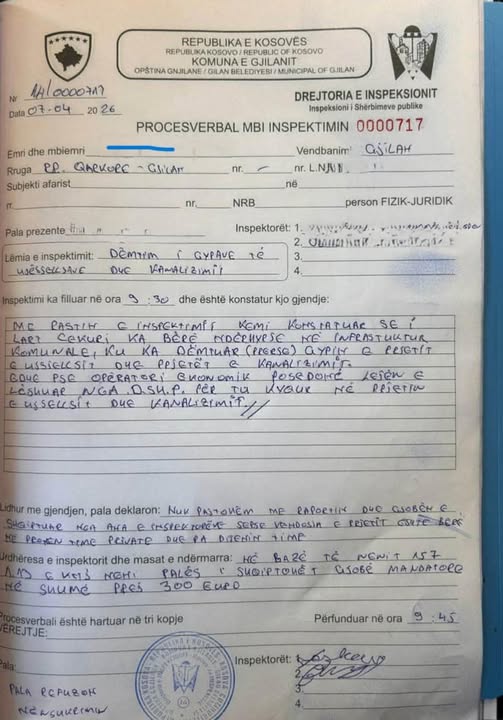 REPUBLIKA E KOSOVËS
REPUBLIKA KOSOVO / REPUBLIC OF KOSOVO
KOMUNA E GJILANIT
OPŠTINA GNJILANE / GILAN BELEDIYESI / MUNICIPAL OF GJILAN
Nr 14/0000717
Data 07-04 2026
DREJTORIA E INSPEKSIONIT
Inspeksioni i Shërbimeve publike
PROCESVERBAL MBI INSPEKTIMIN 0000717
Emri dhe mbiemri Vendbanimi GJILAN
Rruga RR. QARKORE - GJILAN nr. - nr. L.NJ
Subjekti afarist në
rr. nr. NRB person FIZIK-JURIDIK
Pala prezente Inspektorët: 1.
2.
Lëmia e inspektimit: DËMTIM I GYPAVE TË 3.
UJËSSELLSAVE DHE KANALIZIMIT 4.
Inspektimi ka filluar në ora 9:30 dhe është konstatur kjo gjendje:
ME RASTIN E INSPEKTIMIT KEMI KONSTATUAR SE I
LART CEKURI KA BËRË NDËRHYRJE NË INFRASTUKTUR
KOMUNALE, KU KA DËMTUAR (PRERSE) GYPIN E RRJETIT
E UJSSELLSIT DHE RRJETIT E KANALIZIMIT.
EDHE PSE OPERATORI EKONOMIK POSEDONË LEJEN E
LËSHUAR NGA D.SH.P. PËR TU KYQUR NË RRJETIN
E UJSSELLSIT DHE KANALIZIMIT.//
Lidhur me gjendjen, pala deklaron: NUK PAJTOHEM ME RAPORTIN DHE GJOBËN E
SHQIPTUAR NGA ANA E INSPEKTORËVE SEPSE VENDOSJA E RRJETIT ËSHTË BËRË
NË PRONEN TIME PRIVATE DHE PA DIJENIN TIME
Urdhëresa e inspektorit dhe masat e ndërmarra: NË BAZË TË NENIT 157
NENI PALËS I SHQIPTOHET GJOBË MANDATORE
NË SHUMË PREJ 300 EURO
Procesverbali është hartuar në tri kopje Përfunduar në ora 9:45
VËREJTJE:
Pala: Inspektorët: 1.
2.
PALA REFUZON 3.
NËNSHKRIMIN 4.